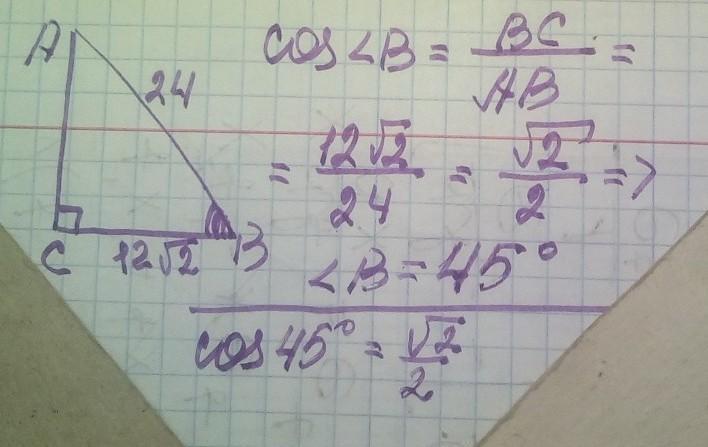 A
24
C
12√2
B
cos∠B = BC/AB =
= 12√2/24 = √2/2 =>
∠B = 45°
cos 45° = √2/2